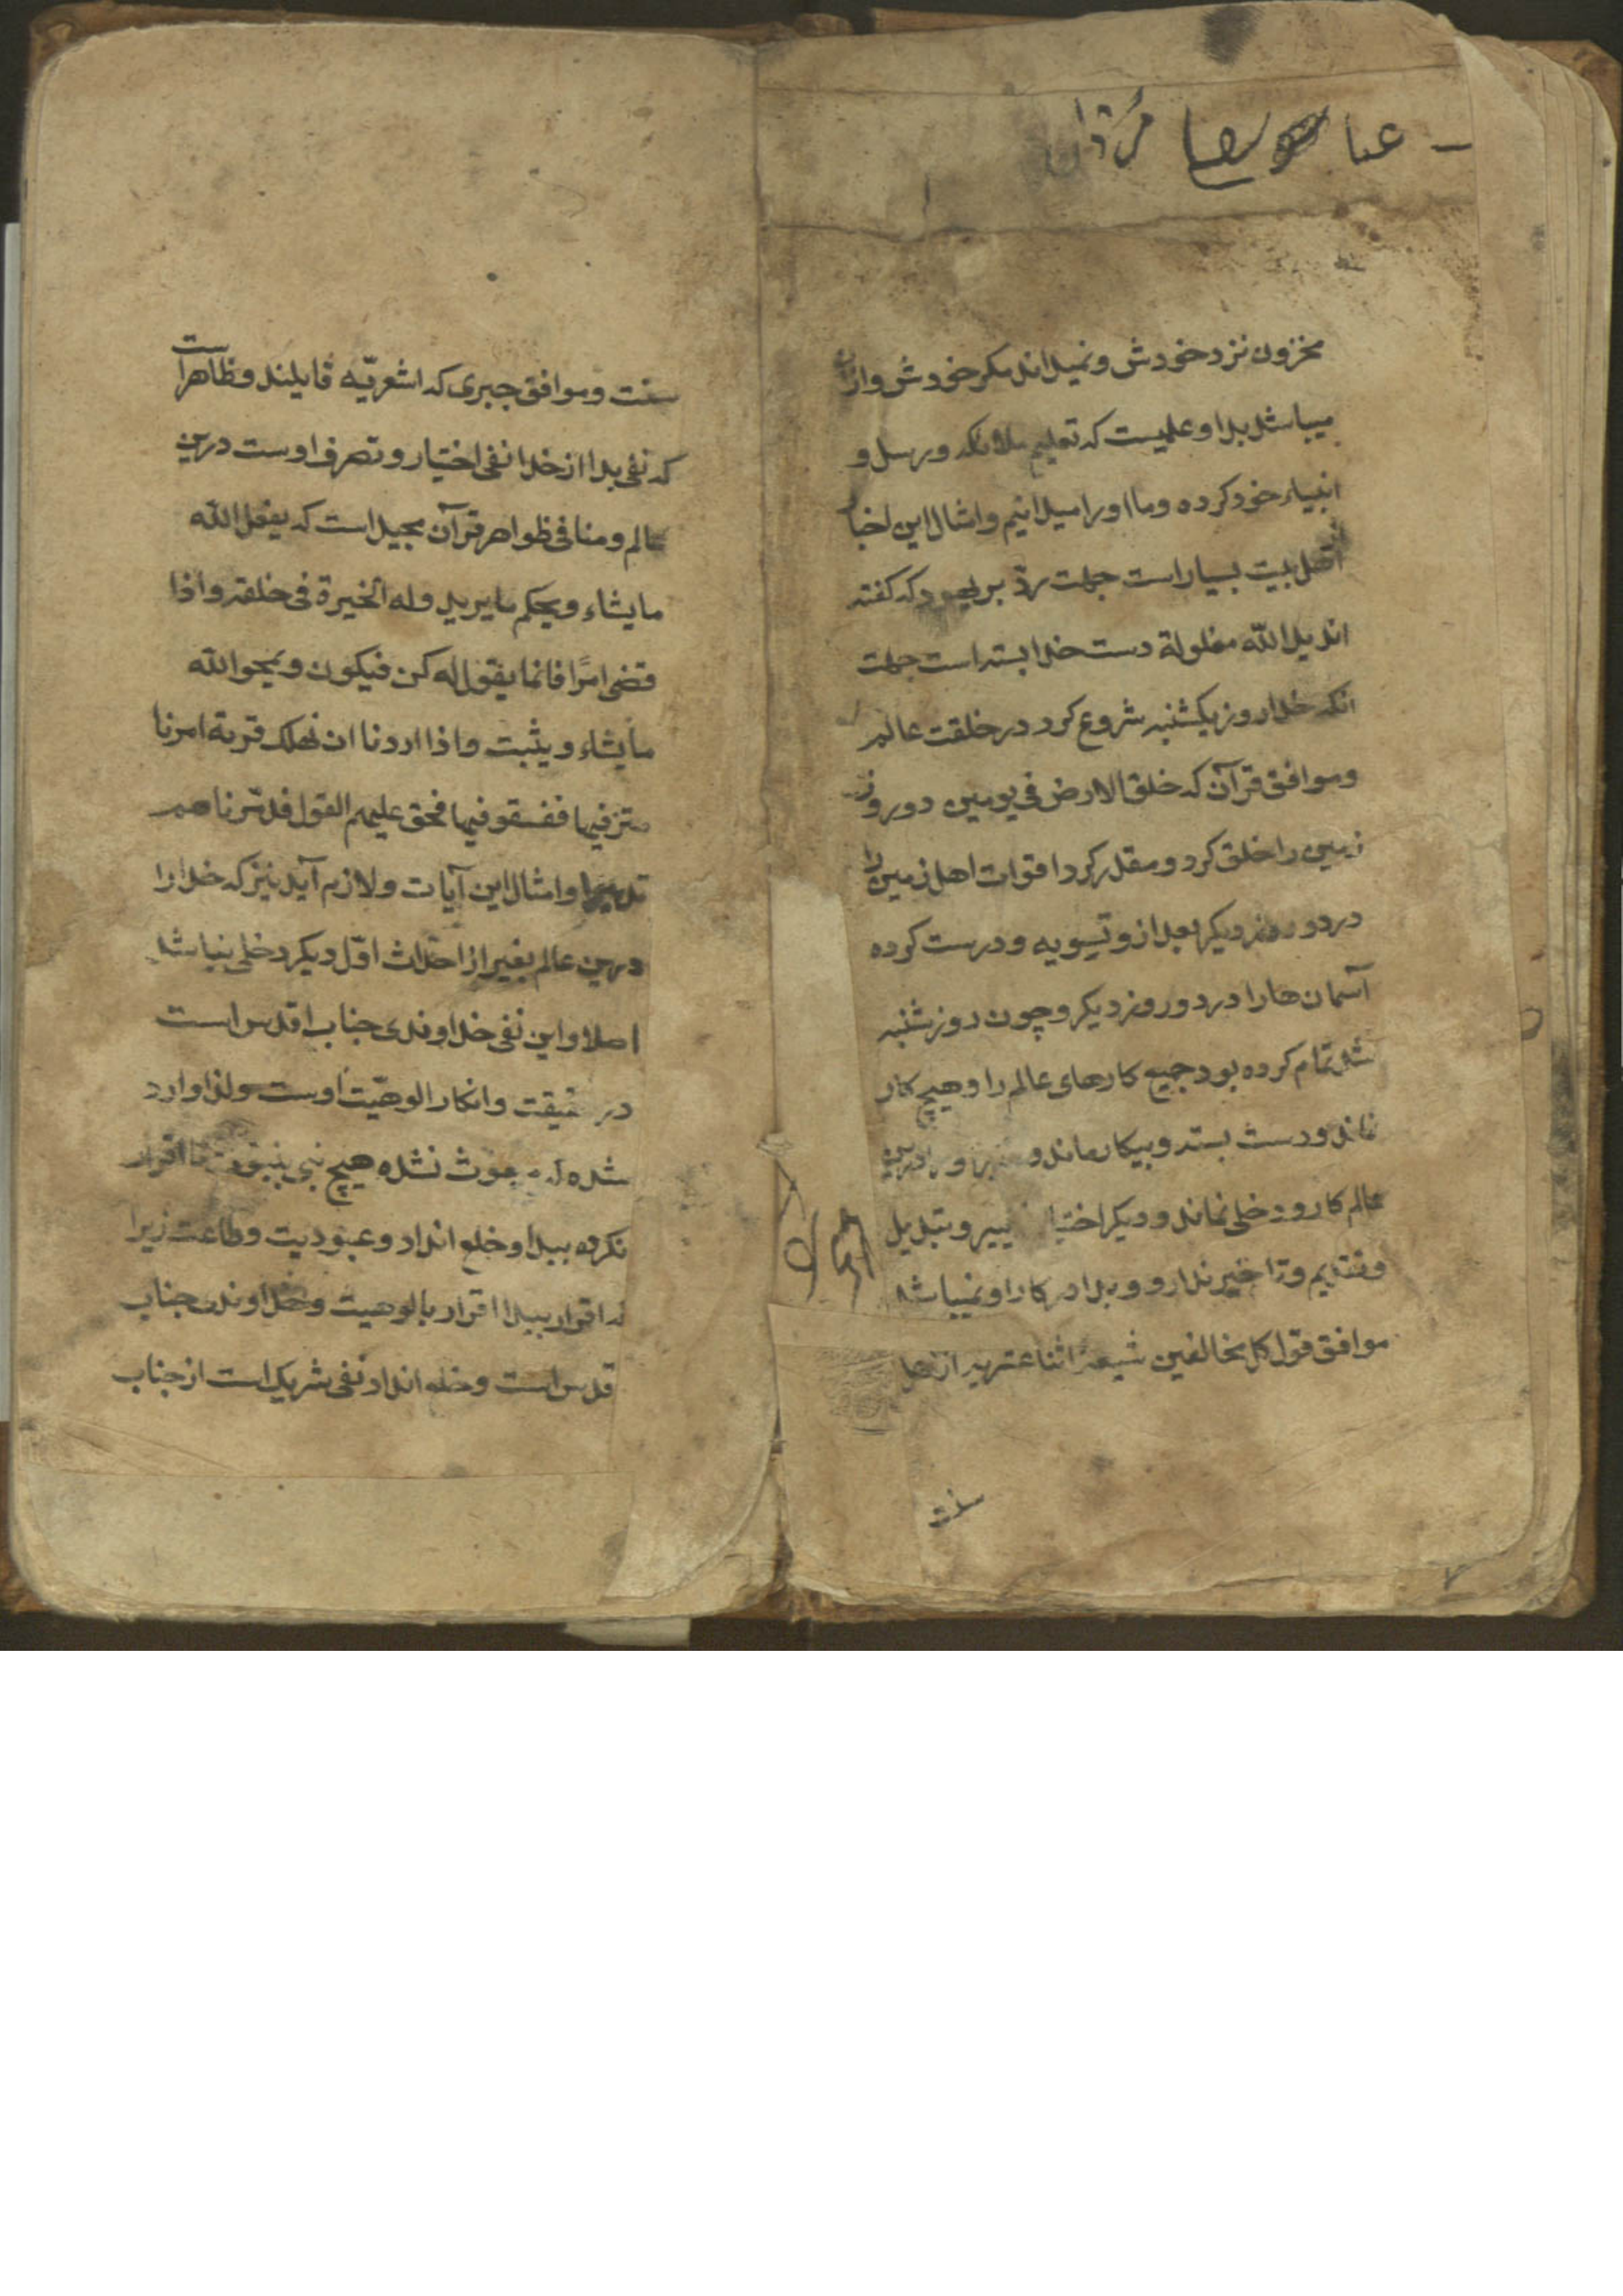 عبا رضا
مخزون نزد خودش و نمیداند مکر خودش و ازان
میباشد بدا و علمیست که تعلیم ملائکه و رسل و
انبیاء خود کرده و ما اورا میدانیم و امثال این اخبار
اهل بیت بسیار است جهت رد بر یهود که کفته
اند ید الله مغلولة دست خدا بسته است جهت
انکه خدا روز یکشنبه شروع کرد در خلقت عالم
و موافق قرآن که خلق الارض فی یومین دو روز
زمین را خلق کرد و مقدر کرد اقوات اهل زمین را
در دو روز دیکر بعد از و تسویه و درست کرده
آسمان ها را در دو روز دیکر و چون روز شنبه
شد تمام کرده بود جمیع کارهای عالم را و هیچ کار
نماند و دست بسته و بیکار ماند و درین
عالم کار و دخلی نماند و دیکر اختیا ییر و تبدیل
و تقدیم و تاخیر ندارد و بدا در کار او نمیباشد
موافق قول کل مخالفین شیعه اثنا عشریه از اهل
سنت
سنت و موافق جبری که اشعریّه قایلند و ظاهر است
که نفی بدا از خدا نفی اختیار و تصرف اوست درین
عالم و منافی ظواهر قرآن مجید است که یفعل الله
ما یشاء و یحکم ما یرید و له الخیرة فی خلقه و اذا
قضی امرًا فانما یقول له کن فیکون و یمحو الله
ما یشاء و یثبت و اذا اردنا ان نهلک قریة امرنا
مترفیها ففسقو فیها فحق علیهم القول فدمّرناهم
تدمیرا و امثال این آیات و لازم آید نیز که خدا را
درین عالم بغیر از احداث اوّل دیکر دخلی نباشد
اصلا و این نفی خداوندی جناب اقدس است
در حقیقت و انکار الوهیّت اوست و لذا وارد
شده که مبعوث نشده هیچ نبی بنبوت تا اقرار
نکرده ببدا و خلع انداد و عبودیت و طاعت زیرا
که اقرار ببدا اقرار بالوهیت و خداوندی جناب
قدس است و خلع انداد نفی شریک است از جناب